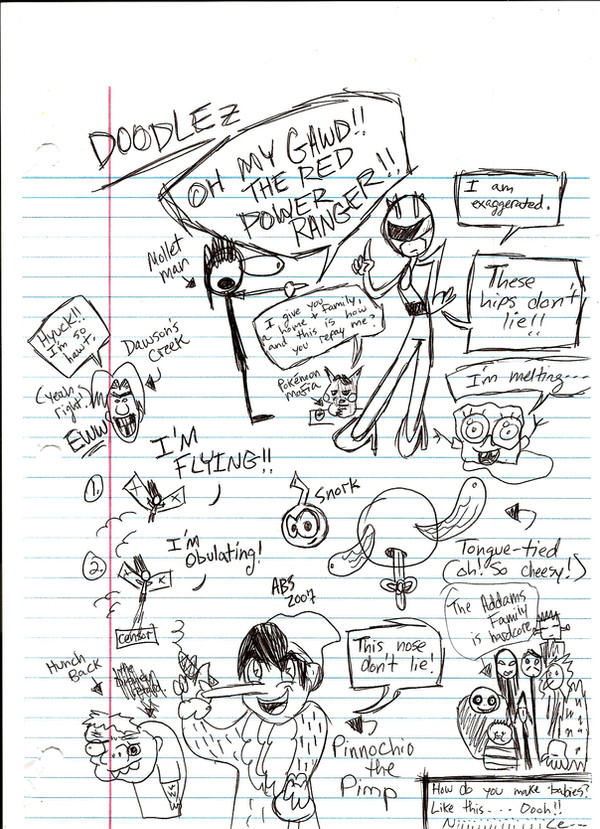 DOODLEZ
OH MY GAWD!!
THE RED
POWER
RANGER!!
I am
exaggerated.
Mollet
man
These
hips don't
lie!!
I give you
a home + family,
and this is how
you repay me?
Hyuck!!
I'm so
hawt.
Dawson's
Creek
Pokémon
mafia
I'm melting---
(yeah,
right!)
EWW
I'M
FLYING!!
1.
Snork
I'm
Obulating!
2.
Tongue-tied
(oh! So cheesy!)
ABS
2007
censor
The Addams
Family
is hardcore
This nose
don't lie!
Hunch
Back
Pinnochio
the
Pimp
How do you make babies?
Like this--- Oooh!!
Niiiiiiiiiiiiice---